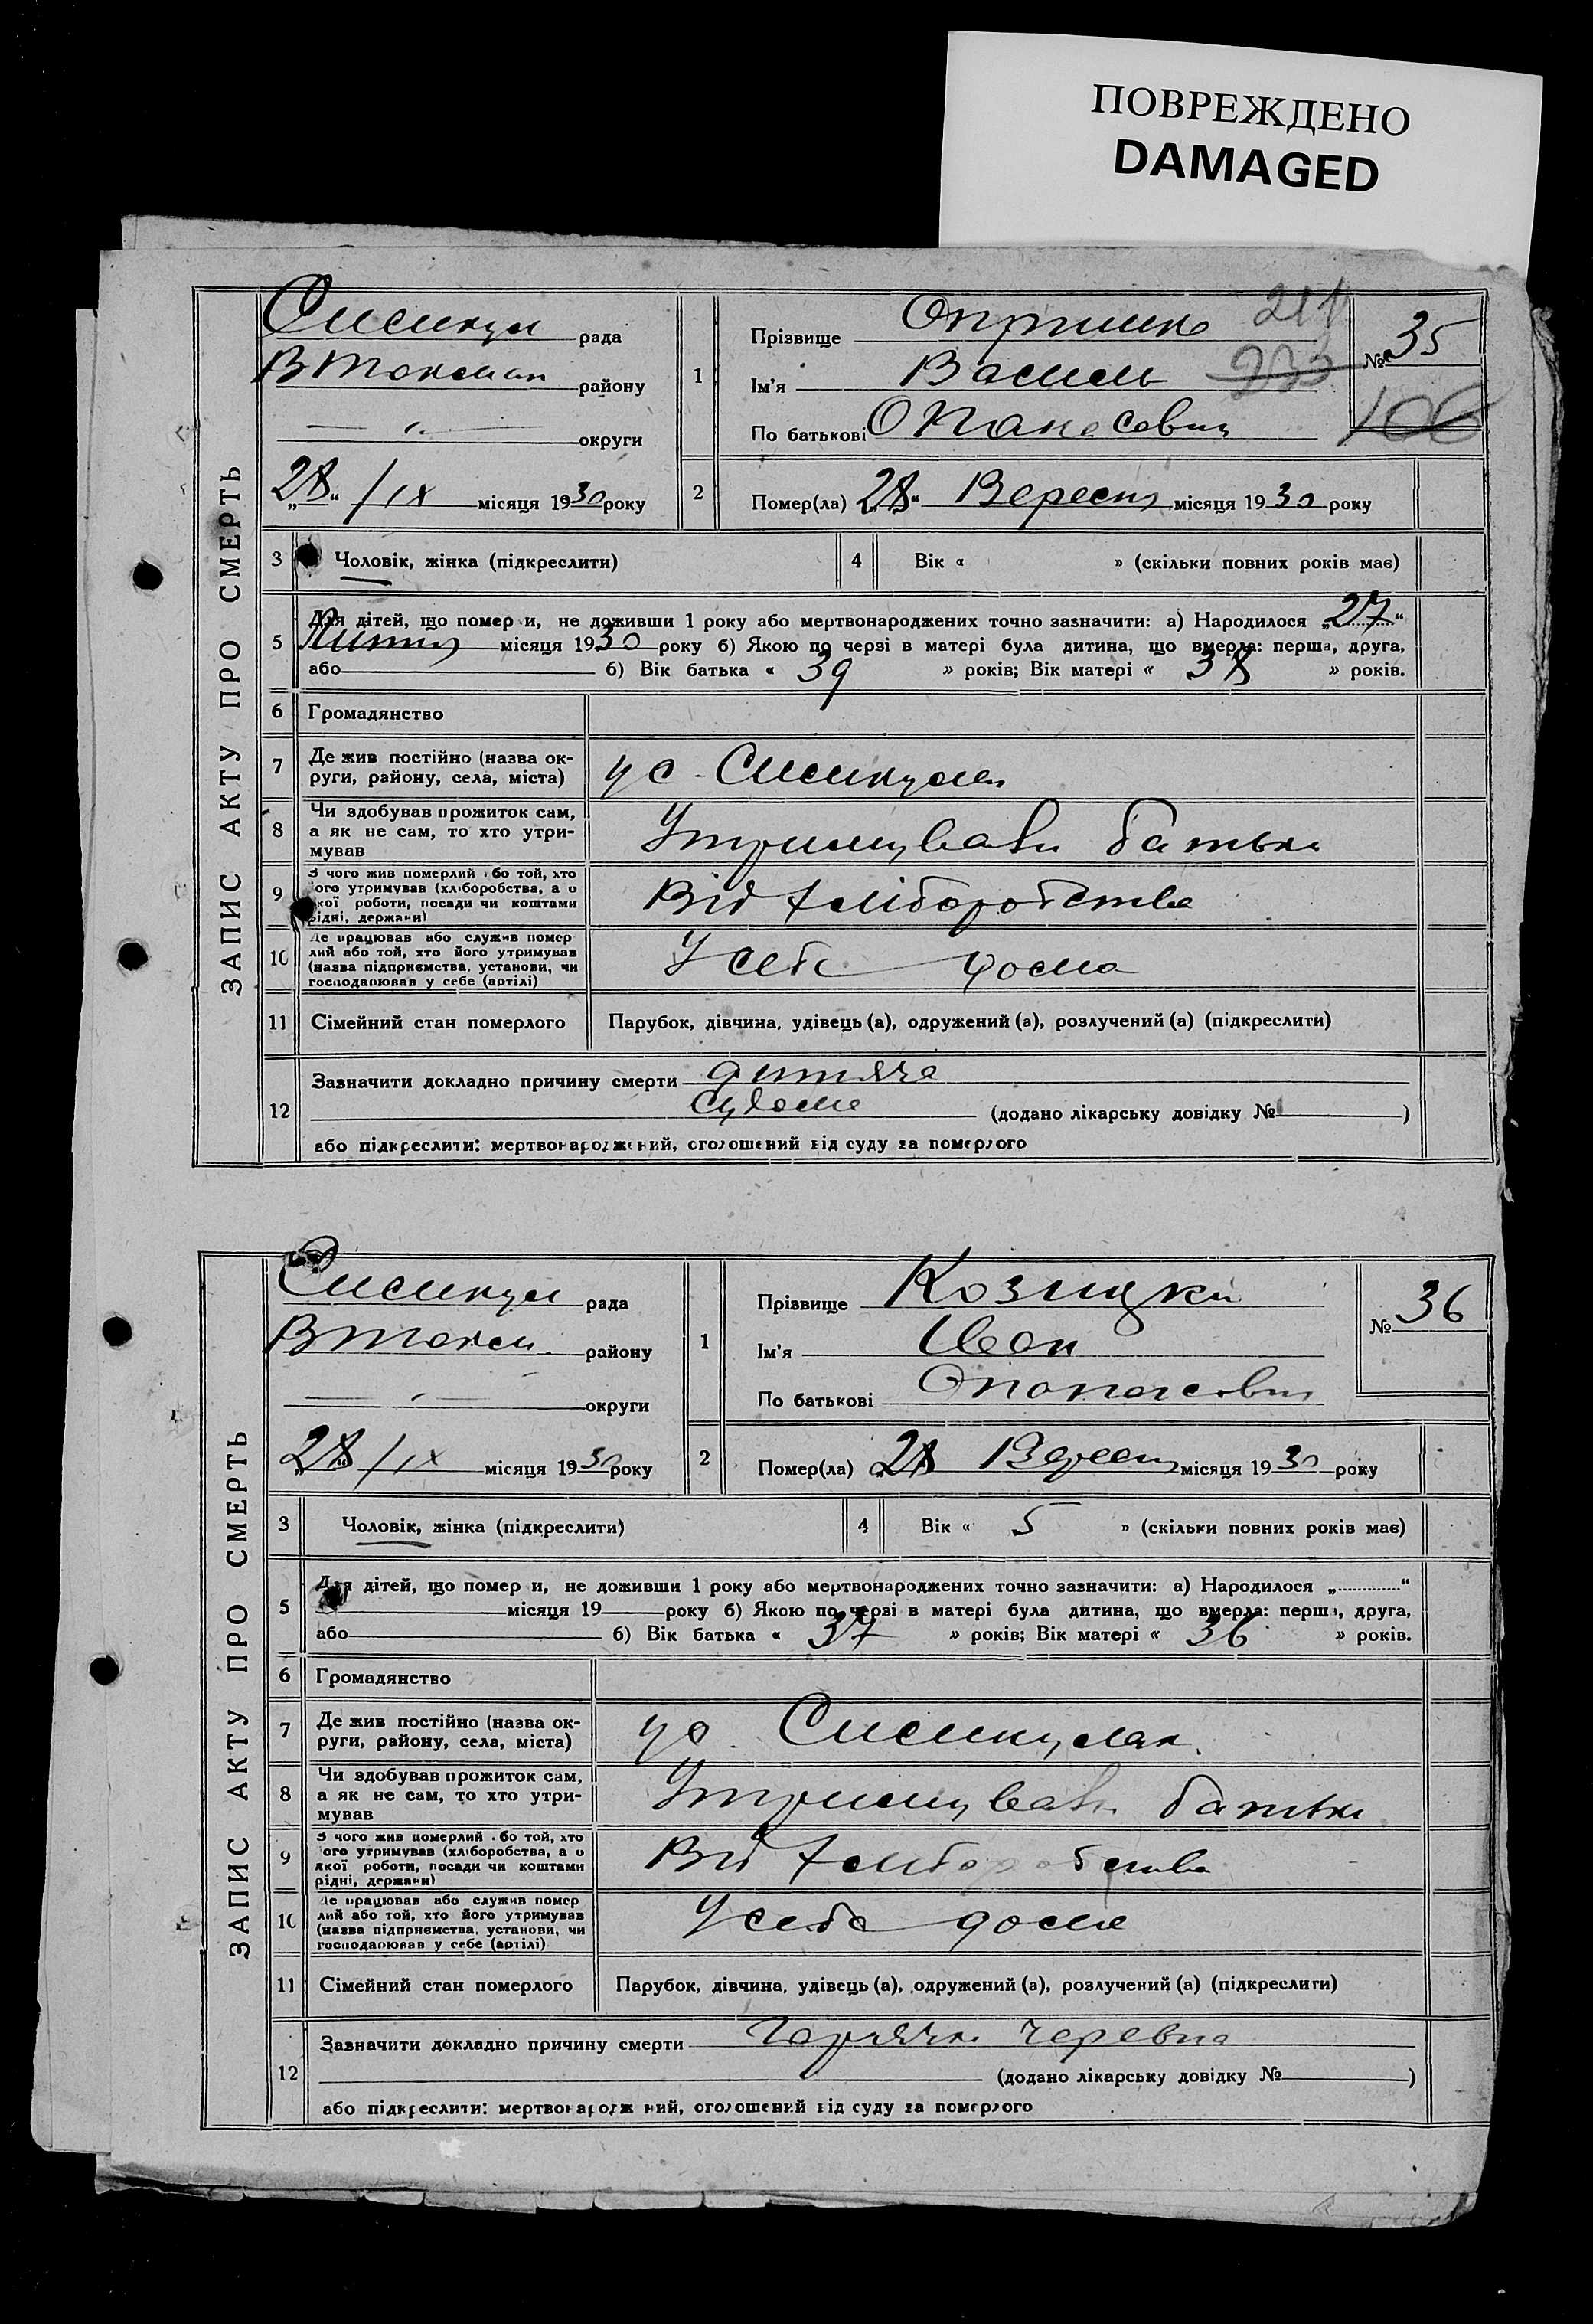 ПОВРЕЖДЕНО
DAMAGED
ЗАПИС АКТУ ПРО СМЕРТЬ
рада
району
округи
"28" /ІХ місяця 1930 року
1
Прізвище Опришко 211
Ім'я Василь 233
По батькові Опанасович
№ 35
106
2 Помер(ла) "28" Вересня місяця 1930 року
3 Чоловік, жінка (підкреслити)
4 Вік « » (скільки повних років має)
5 Для дітей, що померли, не доживши 1 року або мертвонароджених точно зазначити: а) Народилося „27“
Липня місяця 1930 року б) Якою по черзі в матері була дитина, що вмерла: перша, друга,
або б) Вік батька « 39 » років; Вік матері « 38 » років.
6 Громадянство
7 Де жив постійно (назва ок-
руги, району, села, міста)
у с.
8 Чи здобував прожиток сам,
а як не сам, то хто утри-
мував
Утримували батьки
9 З чого жив померлий або той, хто
його утримував (хліборобства, а о
якої роботи, посади чи коштами
рідні, держави)
Від хліборобства
10 Де працював або служив помер
лий або той, хто його утримував
(назва підприємства, установи, чи
господарював у себе (артілі)
У себе дома
11 Сімейний стан померлого
Парубок, дівчина, удівець (а), одружений (а), розлучений (а) (підкреслити)
12 Зазначити докладно причину смерти дитяче
(додано лікарську довідку № )
або підкреслити: мертвонароджений, оголошений від суду за померлого
ЗАПИС АКТУ ПРО СМЕРТЬ
рада
району
округи
"28" /ІХ місяця 1930 року
1
Прізвище Козицкий
Ім'я Іван
По батькові Опанасович
№ 36
2 Помер(ла) "28 Вересня місяця 1930 року
3 Чоловік, жінка (підкреслити)
4 Вік « 5 » (скільки повних років має)
5 Для дітей, що померли, не доживши 1 року або мертвонароджених точно зазначити: а) Народилося „ “
місяця 19 року б) Якою по черзі в матері була дитина, що вмерла: перша, друга,
або б) Вік батька « 37 » років; Вік матері « 36 » років.
6 Громадянство
7 Де жив постійно (назва ок-
руги, району, села, міста)
у с.
8 Чи здобував прожиток сам,
а як не сам, то хто утри-
мував
Утримували батьки
9 З чого жив померлий або той, хто
його утримував (хліборобства, а о
якої роботи, посади чи коштами
рідні, держави)
Від хліборобства
10 Де працював або служив помер
лий або той, хто його утримував
(назва підприємства, установи, чи
господарював у себе (артілі)
У себе дома
11 Сімейний стан померлого
Парубок, дівчина, удівець (а), одружений (а), розлучений (а) (підкреслити)
12 Зазначити докладно причину смерти Горячка черевна
(додано лікарську довідку № )
або підкреслити: мертвонароджений, оголошений від суду за померлого